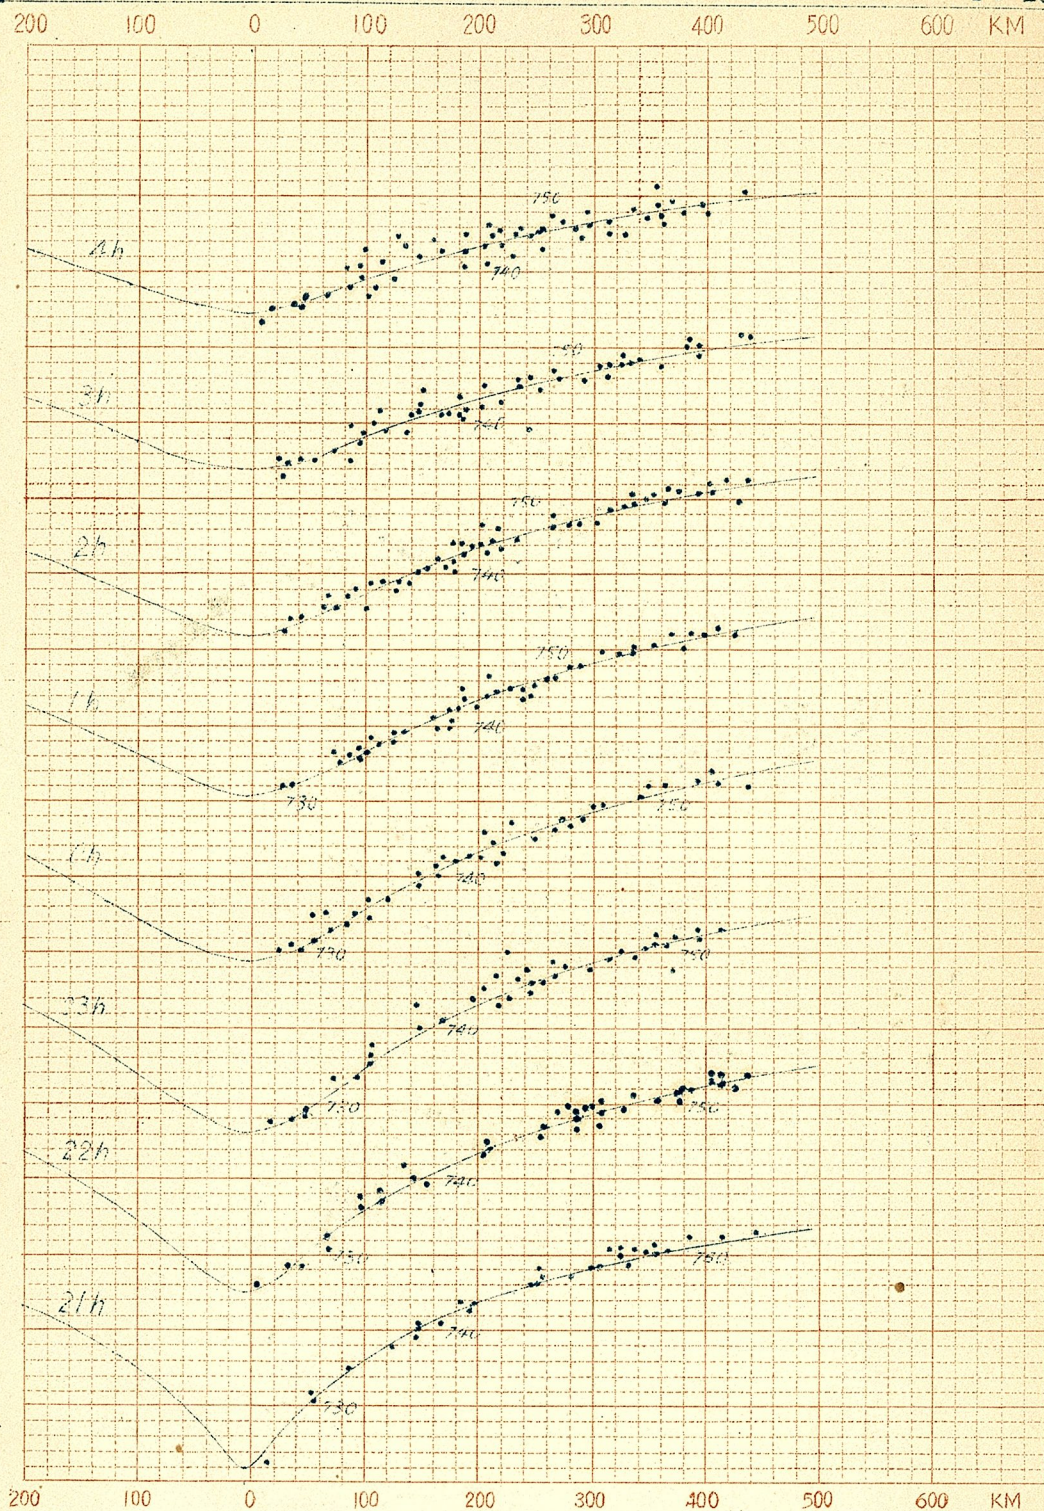 200 100 0 100 200 300 400 500 600 KM
750
4h
740
3h
740
750
2h
740
750
1h
740
730
750
740
730
23h
750
740
730
22h
750
740
730
21h
750
740
730
200 100 0 100 200 300 400 500 600 KM